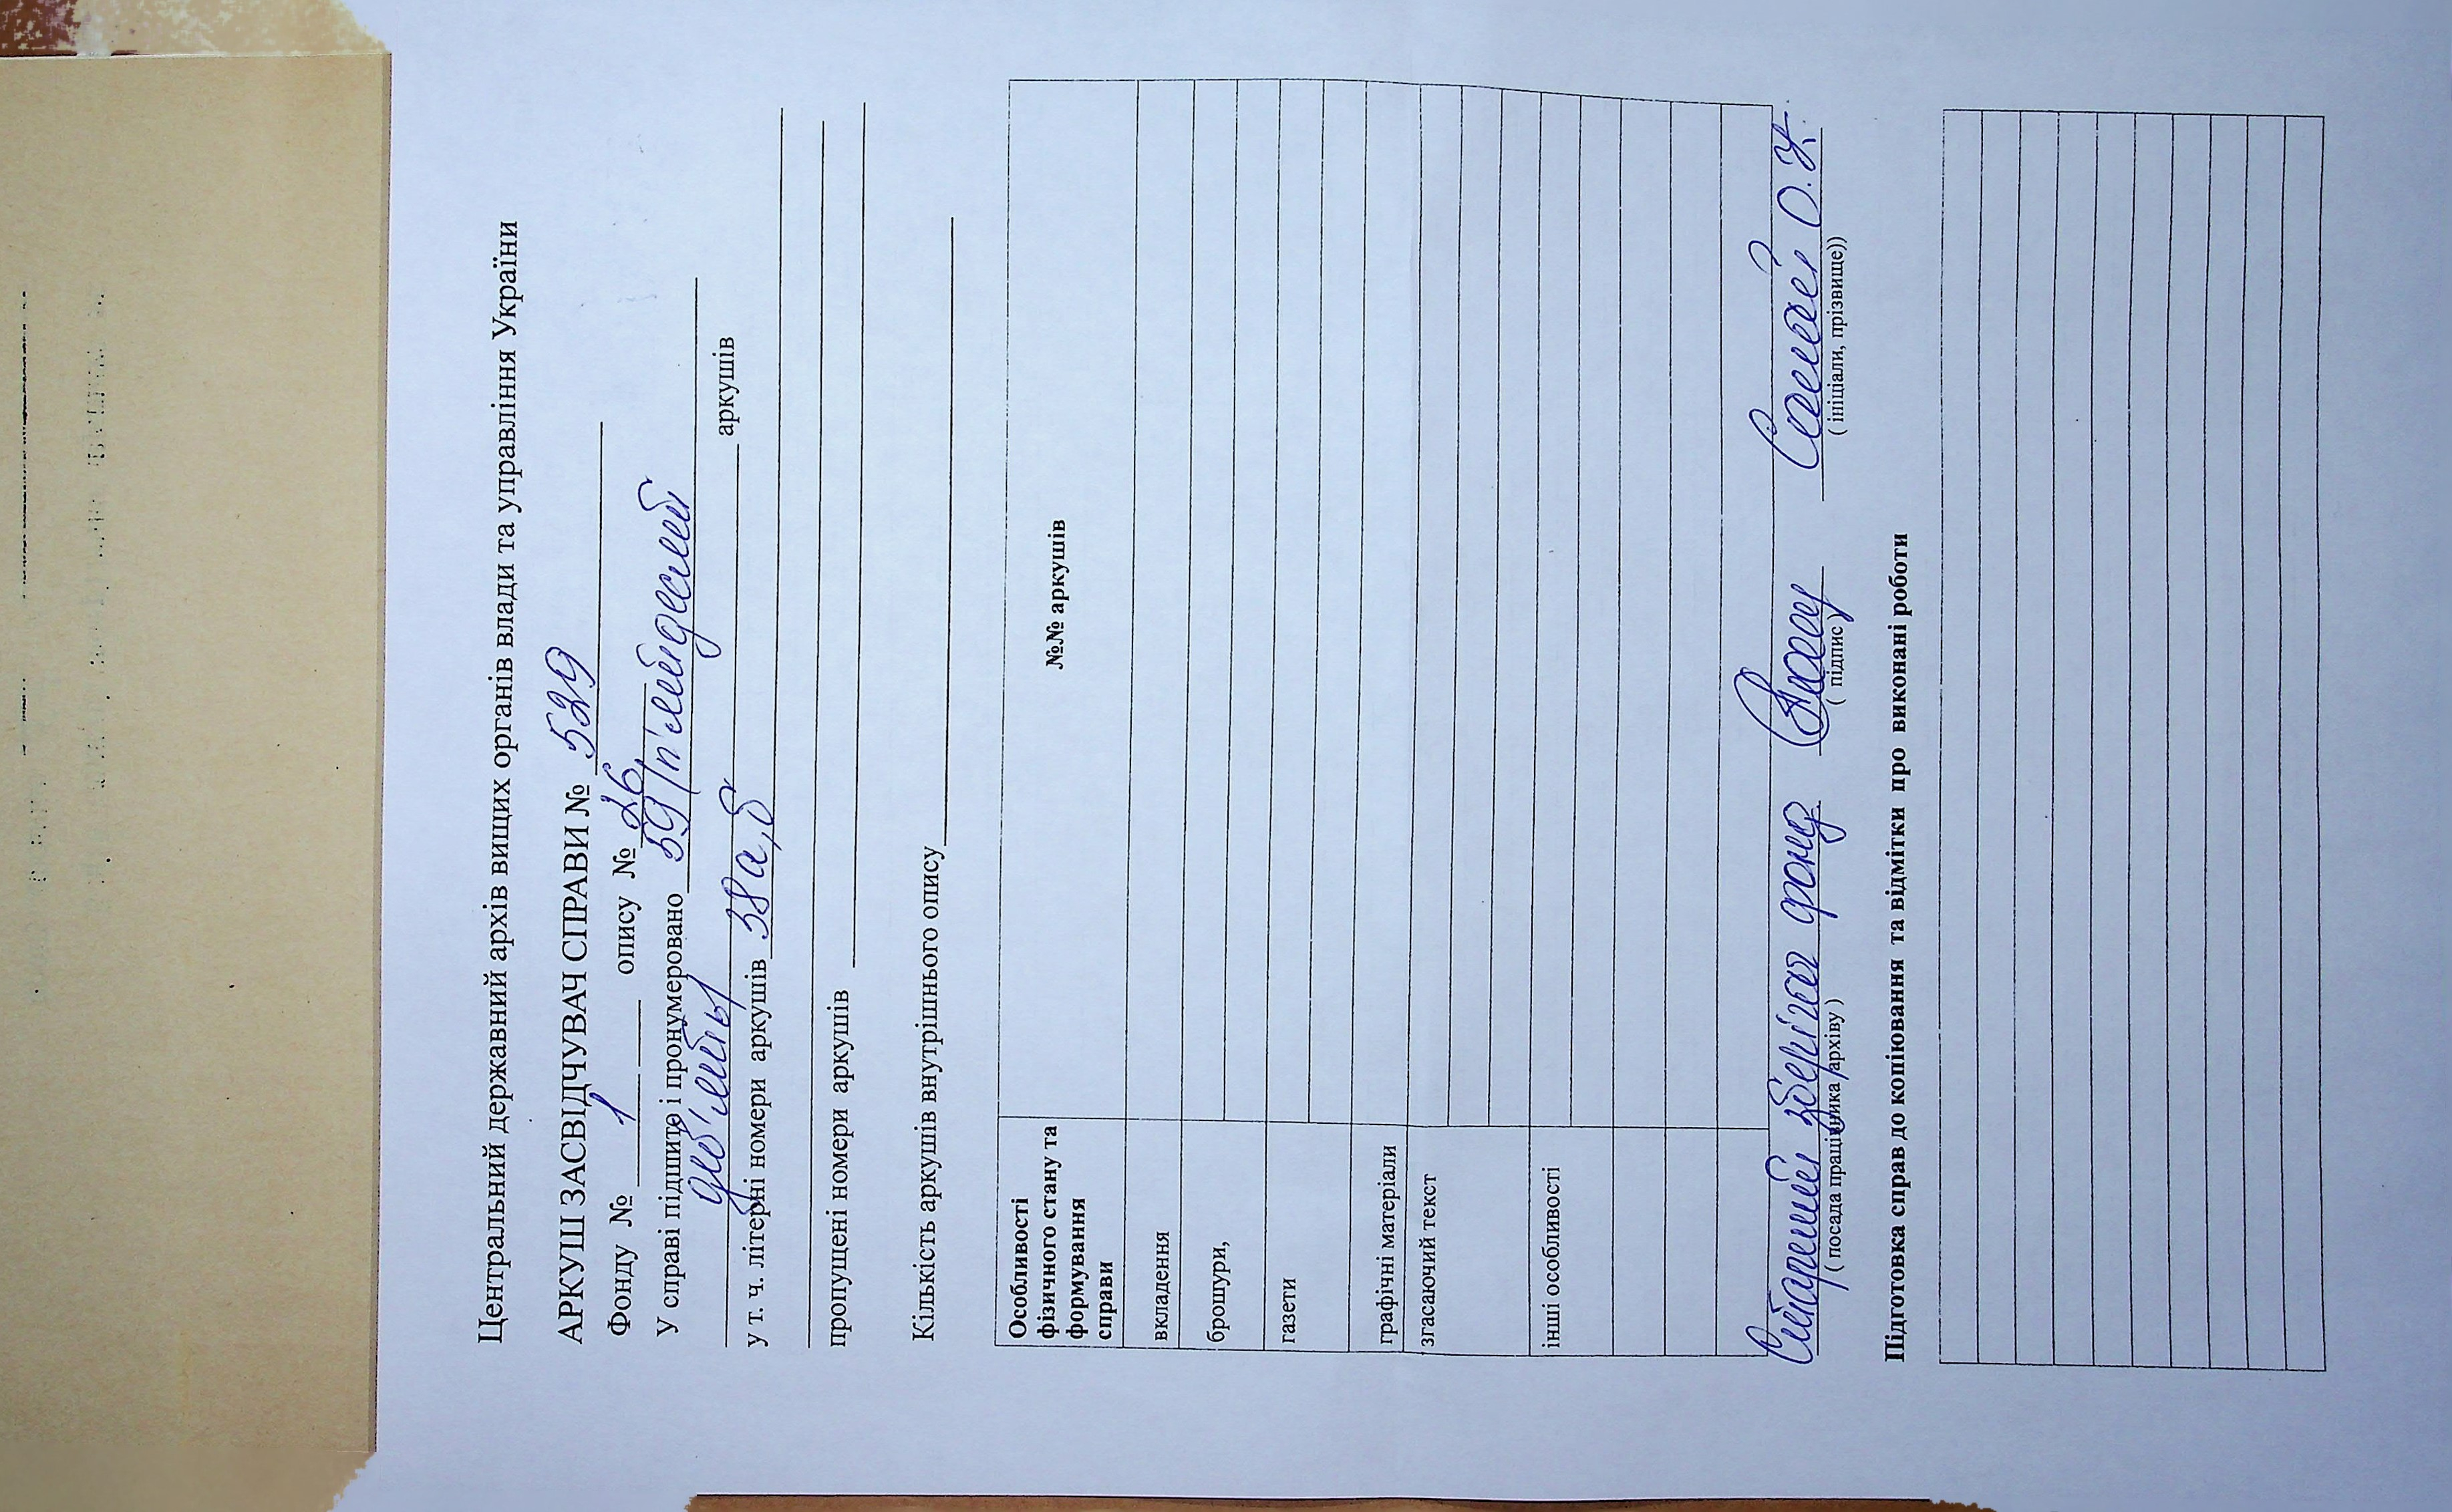 Центральний державний архів вищих органів влади та управління України
АРКУШ ЗАСВІДЧУВАЧ СПРАВИ № 529
Фонду № 1 опису № 26
У справі підшито і пронумеровано 59 (п'ятдесят
дев'ять) аркушів
у т. ч. літерні номери аркушів 38а,б
пропущені номери аркушів
Кількість аркушів внутрішнього опису
Особливості фізичного стану та формування справи №№ аркушів
вкладення
брошури,
газети
графічні матеріали
згасаючий текст
інші особливості
Старший зберігач фонд.
( посада працівника архіву ) ( підпис ) ( ініціали, прізвище))
Підготовка справ до копіювання та відмітки про виконані роботи